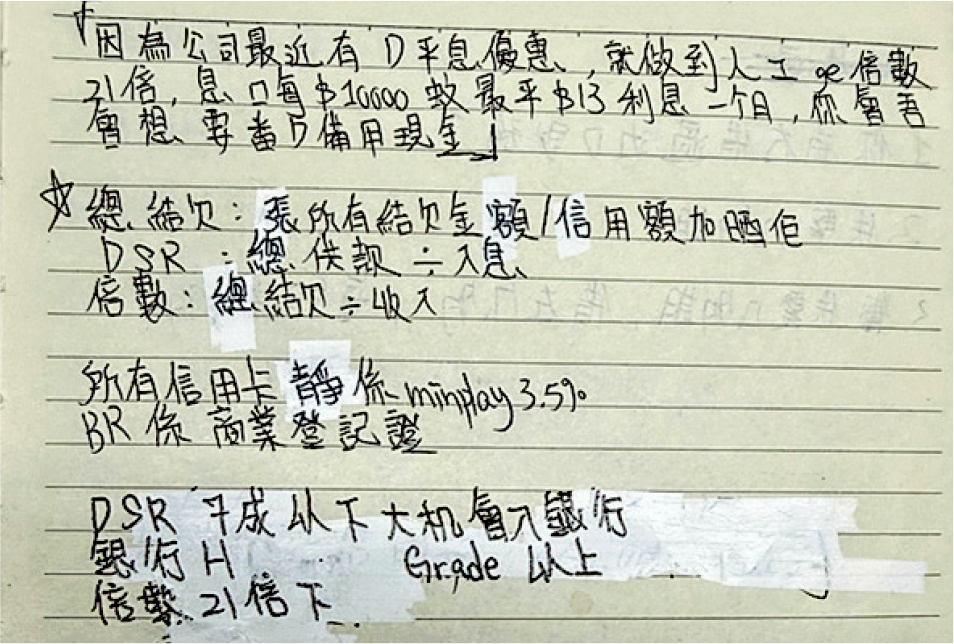 因為公司最近有D平息優惠,就做到人工ge倍數
21倍,息口每$10000蚊最平$13利息一个月,你會吾
會想要番D備用現金
☆總結欠:張所有結欠金額/信用額加晒佢
DSR:總供款÷入息
倍數:總結欠÷收入
所有信用卡靜係minplay 3.5%
BR係商業登記證
DSR 7成以下大机會入銀行
銀行H Grade以上
倍數21倍下